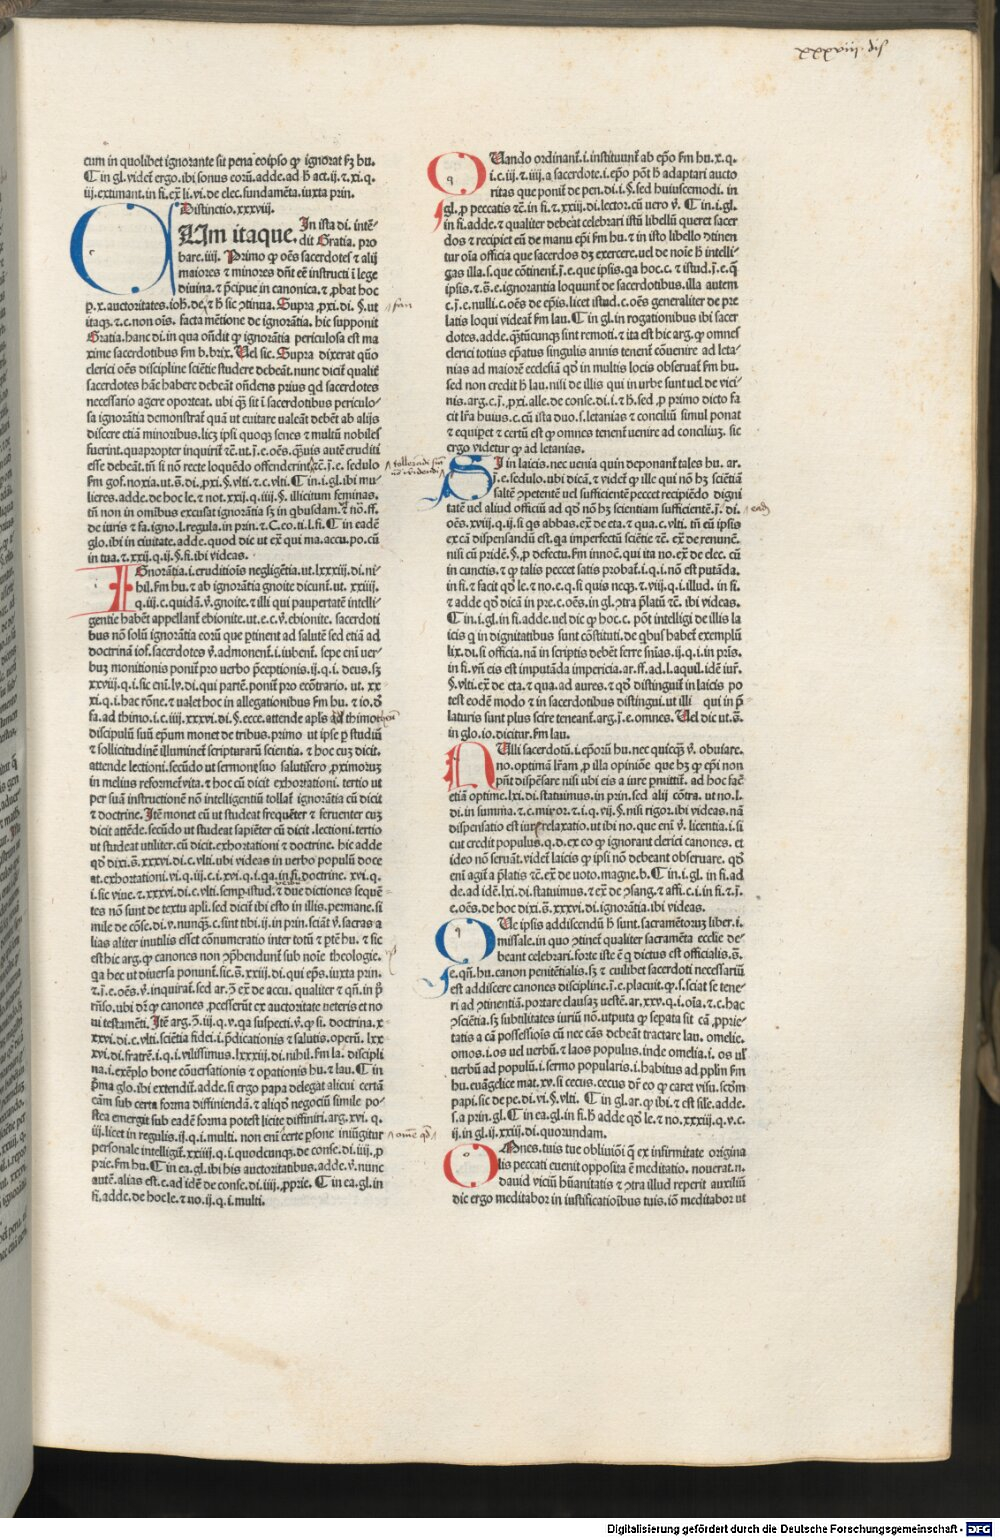 xxxviij. dis
cum in quolibet ignorante sit pena eoipso ꝙ ignorat sꝫ hu.
¶ In gl. videt̃ ergo. ibi sonus eoꝝ. adde. ad h̃ act. ij. ⁊. xi. q.
iij. extimant. in fi. ex̃ li. vi. de elec. fundamẽta. iuxta prin.
Distinctio. xxxviij.
Um itaque. In ista di. intẽ
dit Gratia. pro
bare. iiij. Primo ꝙ oẽs sacerdotes ⁊ alij
maiores ⁊ minores dñt eẽ instructi ĩ lege
diuina. ⁊ p̃cipue in canonica. ⁊ ꝓbat hoc
p. x. auctoritates. ioh. de. ⁊ h̃ sic ꝯtinua. Supra ꝓxi. di. §. ut
itaqꝫ. ⁊. c. non oĩs. facta mẽtione de ignorãtia. hic supponit
Gratia. hanc di. in qua oñdit ꝙ ignorãtia periculosa est ma
xime sacerdotibus fm b. brix. Uel sic. Supra dixerat qño
clerici oẽs discipline sciẽtie studere debeãt. nunc dicit̃ qualit̃
sacerdotes hãc habere debeãt oñdens prius qd sacerdotes
necessario agere oporteat. ubi q̃ sit ĩ sacerdotibus periculo-
sa ignorãtia demonstrat̃ quã ut euitare ualeãt debẽt ab alijs
discere etiã minoribus. licꝫ ipsi quoqꝫ senes ⁊ multũ nobiles
fuerint. quapropter inquirit̃ ⁊c̃. ut. j̃. e. oẽs. q̃uis autẽ eruditi
esse debeãt. tñ si nõ recte loquẽdo offenderint ⁊c̃. j̃. e. sedulo
fm gof. noxia. ut. s̃. di. ꝓxi. §. vlti. ⁊. c. vlti. ¶ In. i. gl. ibi mu-
lieres. adde. de hoc le. ⁊ not. xxij. q. iiij. §. illicitum feminas.
tñ non in omibus excusat ignorãtia sꝫ in qbusdam. ⁊ nõ. ff.
de iuris ⁊ fa. igno. l. regula. in prin. ⁊. C. eo. ti. l. fi. ¶ In eadẽ
glo. ibi in ciuitate. adde. quod dic ut ex̃ qui ma. accu. po. cũ
in tua. ⁊. xxij. q. ij. §. fi. ibi videas.
Gnorãtia. i. eruditiõis negligẽtia. ut. lxxxiij. di. ni-
hil. fm hu. ⁊ ab ignorãtia gnoite dicunt̃. ut. xxiiij.
q. iij. c. quidã. v̊. gnoite. ⁊ illi qui paupertatẽ intelli-
gentie habẽt appellant̃ ebionite. ut. e. c. v̊. ebionite. sacerdoti
bus nõ solũ ignorãtia eoꝝ que ꝑtinent ad salutẽ sed etiã ad
doctrinã iof. sacerdotes v̊. admonent̃. i. iubent̃. sepe enĩ uer
buꝫ monitionis ponit̃ pro uerbo p̃ceptionis. ij. q. i. deus. sꝫ
xxviij. q. i. sic enĩ. lv. di. qui partẽ. ponit̃ pro ecõtrario. ut. xx
xi. q. i. hac rõne. ⁊ ualet hoc in allegationibus fm hu. ⁊ io. d̊
fa. ad thimo. i. c. iiij. xxxvi. di. §. ecce. attende apl̃s ad thimotheũ
discipulũ suũ epũm monet de tribus. primo ut ipse p̱ studiũ
⁊ sollicitudinẽ illuminet̃ scripturarũ scientia. ⁊ hoc cuꝫ dicit.
attende lectioni. secũdo ut sermone suo salutifero ꝓximoruꝫ
in melius reformet̃ vita. ⁊ hoc cũ dicit exhortationi. tertio ut
per suã instructionẽ nõ intelligentiũ tollat̃ ignorãtia cũ dicit
⁊ doctrine. Itẽ monet eũ ut studeat frequẽter ⁊ feruenter cuꝫ
dicit attẽde. secũdo ut studeat sapiẽter cũ dicit. lectioni. tertio
ut studeat utiliter. cũ dicit. exhortationi ⁊ doctrine. hic adde
qd̊ dixi. s̃. xxxvi. di. c. vlti. ubi videas in uerbo populũ doce
at. exhortationi. vi. q. iij. c. i. xvi. q. i. qa. in fi. doctrine. xvi. q.
i. sic viue. ⁊. xxxvi. di. c. vlti. semp. istud. ⁊ due dictiones sequẽ
tes nõ sunt de textu apli. sed dicit̃ ibi esto in illis. permane. si
mile de cõse. di. v. nunqꝫ. c. sunt tibi. ij. in prin. sciãt v̊. sacras a
lias aliter inutilis esset cõnumeratio inter totũ ⁊ ptẽ hu. ⁊ sic
est hic arg. ꝙ canones non ꝓ̃hendunt̃ sub noĩe theologie.
qa hec ut diuersa ponunt̃. sic. s̃. xxiij. di. qui eps̃. iuxta prin.
⁊. j̃. e. oẽs. v̊. inquirat̃. sed ar. ꝯ ex̃ de accu. qualiter ⁊ qñ. in p̃
rñso. ubi dr̃ ꝙ canones ꝓcesserũt ex auctoritate ueteris et no
ui testamẽti. Itẽ arg. ꝯ. iij. q. v. qa suspecti. v̊. ꝙ si. doctrina. x
xxvi. di. c. vlti. sciẽtia fidei. i. p̃dicationis ⁊ salutis. operũ. lxx
xvi. di. fratrẽ. i. q. i. vilissimus. lxxxiij. di. nihil. fm la. discipli
na. i. exẽplo bone cõuersationis ⁊ opationis hu. ⁊ lau. ¶ In
p̃ma glo. ibi extendit̃. adde. si ergo papa delegat alicui certã
cãm sub certa forma diffiniendã. ⁊ aliqd̊ negociũ simile po-
stea emergit sub eadẽ forma potest licite diffiniri. arg. xvi. q.
iij. licet in regulis. ij. q. i. multi. non enĩ certe psone iniũgitur
personale intelligit̃. xxiij. q. i. quodcunqꝫ. de conse. di. iiij. ꝓ
prie. fm hu. ¶ In ea. gl. ibi his auctoritatibus. adde. v̊. nunc
autẽ. alias est. c. ad idẽ de conse. di. iiij. ꝓprie. ¶ In ea. gl. in
fi. adde. de hoc le. ⁊ no. ij. q. i. multi.
Uando ordinant̃. i. instituunt̃ ab epõ fm hu. x. q.
i. c. iij. ⁊. iiij. a sacerdote. i. epõ põt h̃ adaptari aucto
ritas que ponit̃ de pen. di. i. §. sed huiuscemodi. in
gl. ꝓ peccatis ⁊c̃. in fi. ⁊. xxiij. di. lector. cũ uero v̊. ¶ In. i. gl.
in fi. adde. ⁊ qualiter debeat celebrari istũ libellũ queret sacer
dos ⁊ recipiet eũ de manu epĩ fm hu. ⁊ in isto libello ꝯtinen
tur oĩa officia que sacerdos dꝫ exercere. uel de noĩe h̃ intelli-
gas illa. s. que cõtinent̃. j̃. e. que ipsis. qa hoc. c. ⁊ istud. j̃. e. q̃
ipsis. ⁊. s̃. e. ignorantia loquunt̃ de sacerdotibus. illa autem
c. j̃. e. nulli. c. oẽs de epis. licet istud. c. oẽs generaliter de pre
latis loqui videat̃ fm lau. ¶ In gl. in rogationibus ibi sacer
dotes. adde. q̃tũcunqꝫ sint remoti. ⁊ ita est hic arg. ꝙ omnes
clerici totius ep̃atus singulis annis tenent̃ cõuenire ad leta-
nias ad maiorẽ ecclesiã qd̊ in multis locis obseruat̃ fm hu.
sed non credit h̃ lau. nisi de illis qui in urbe sunt uel de vici
nis. arg. c. j̃. ꝓxi. alle. de conse. di. i. ⁊ h̃. sed. ꝓ primo dicto fa
cit lr̃a huius. c. cũ ista duo. s. letanias ⁊ conciliũ simul ponat
⁊ equipet ⁊ certũ est ꝙ omnes tenent̃ uenire ad conciliuꝫ. sic
ergo videtur ꝙ ad letanias.
I in laicis. nec uenia quin deponant̃ tales hu. ar.
j̃. e. sedulo. ubi dicã. ⁊ videt̃ ꝙ ille qui nõ hꝫ sciẽtiã
saltẽ ꝯpetentẽ uel sufficientẽ peccet recipiẽdo digni
tatẽ uel aliud officiũ ad qd̊ nõ hꝫ scientiam sufficientẽ. j̃. di.
oẽs. xviij. q. ij. si qs abbas. ex̃ de eta. ⁊ qua. c. vlti. tñ eũ ipsis
ex cã dispensandũ est. qa imperfectũ sciẽtie ⁊c̃. ex̃ de renunẽ.
nisi cũ pridẽ. §. ꝓ defectu. fm innoc̃. qui ita no. ex̃ de elec. cũ
in cunctis. ⁊ ꝙ talis peccet satis probat̃. i. q. i. nõ est putãda.
in fi. ⁊ facit qd̊ le. ⁊ no. e. q. si quis necqꝫ. ⁊. viij. q. i. illud. in fi.
⁊ adde qd̊ dicã in pre. c. oẽs. in gl. ꝯtra p̃latũ ⁊c̃. ibi videas.
¶ In. i. gl. in fi. adde. uel dic ꝙ hoc. c. põt intelligi de illis la
icis q in dignitatibus sunt cõstituti. de qbus habet̃ exemplũ
lix. di. si officia. nã in scriptis debẽt ferre sñias. ij. q. i. in prĩs.
in fi. vñ eis est imputãda impericia. ar. ff. ad. l. aquil. idẽ iur̃.
§. vlti. ex̃ de eta. ⁊ qua. ad aures. ⁊ qd̊ distinguit̃ in laicis po
test eodẽ modo ⁊ in sacerdotibus distingui. ut illi qui in p̃
laturis sunt plus scire teneant̃. arg. j̃. e. omnes. Uel dic ut. s̃.
in glo. io. dicitur. fm lau.
Ulli sacerdotũ. i. epõrũ hu. nec quicqꝫ v̊. obuiare.
no. optimã lr̃am. ꝓ illa opiniõe que hꝫ ꝙ epĩ non
pñt dispẽsare nisi ubi eis a iure ꝑmittit̃. ad hoc facẽ
etiã optime. lxi. di. statuimus. in prin. sed alij cõtra. ut no. l.
di. in summa. ⁊ c. miror. ⁊ i. q. vij. §. nisi rigor. ibi videas. nã
dispensatio est iuris relaxatio. ut ibi no. que enĩ v̊. licentia. i. si
cut credit populus. q. d. ex eo ꝙ ignorant clerici canones. et
ideo nõ seruãt. videt̃ laicis ꝙ ipsi nõ debeant obseruare. qd̊
enĩ agit̃ a p̃latis ⁊c̃. ex̃ de uoto. magne. b. ¶ In. i. gl. in fi. ad
de. ad idẽ. lxi. di. statuimus. ⁊ ex̃ de ꝯsang. ⁊ affi. c. i. in fi. ⁊. j̃.
e. oẽs. de hoc dixi. s̃. xxxvi. di. ignorãtia. ibi videas.
Ue ipsis addiscendũ h̃ sunt. sacramẽtoruꝫ liber. i.
missale. in quo ꝯtinet̃ qualiter sacramẽta ecclie de-
beant celebrari. forte iste ẽ q dictus est officialis. s̃.
e. qñ. hu. canon penitẽtialis. sꝫ ⁊ cuilibet sacerdoti necessariũ
est addiscere canones discipline. j̃. e. placuit. q. s. sciat se tene-
ri ad ꝯtinentiã. portare clausaꝫ uestẽ. ar. xxv. q. i. oĩa. ⁊. c. hac
ꝯsciẽtia. sꝫ subtilitates iuriũ nõ. utputa ꝙ sepata sit cã ꝓprie-
tatis a cã possessiois cũ nec eas debeãt tractare lau. omelie.
omos. i. os uel uerbũ. ⁊ laos populus. inde omelia. i. os ul̃
uerbũ ad populũ. i. sermo popularis. i. habitus ad pplm̃ fm
hu. euãgelice mat. xv. si cecus. cecus dr̃ eo ꝙ caret visu. scd̃m
papi. sic de pe. di. vi. §. vlti. ¶ In gl. ar. ꝙ ibi. ⁊ est sile. adde.
s. a prin. gl. ¶ In ea. gl. in fi. h̃ adde qd̊ le. ⁊ no. xxxiij. q. v. c.
ij. in gl. ij. xxiij. di. quorundam.
Mnes. tuis tue obliuiõi q̃ ex infirmitate origina
lis peccati euenit opposita ẽ meditatio. nouerat. n.
dauid viciũ hũanitatis ⁊ ꝯtra illud reperit auxiliũ
dic ergo meditabor in iustificatioĩbus tuis. iõ meditabor ut
Digitalisierung gefördert durch die Deutsche Forschungsgemeinschaft - DFG